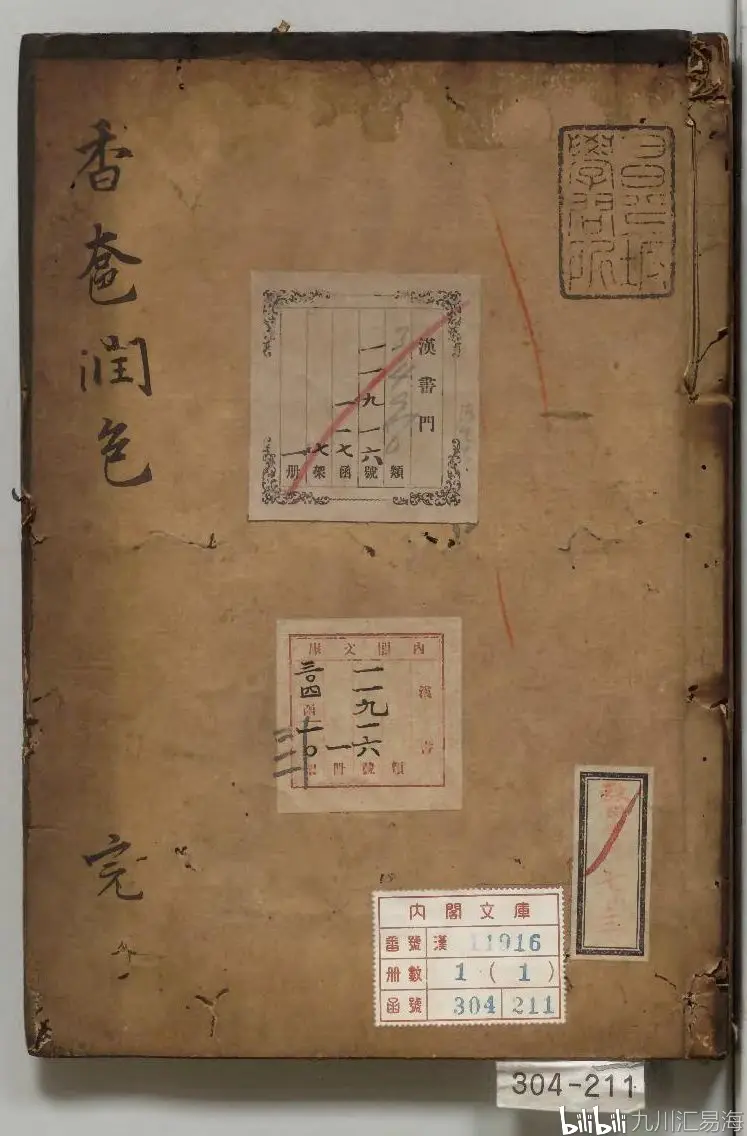 香奩潤色
完
昌平坂
學問所
漢書門
類
一一九一六號
一一七函
七架
一册
內閣文庫
漢書
一一九一六
類號
一册
三〇四函
一〇
內閣文庫
番號 漢 11916
册數 1(1)
函號 304 211
304-211
bilibili 九川汇易海